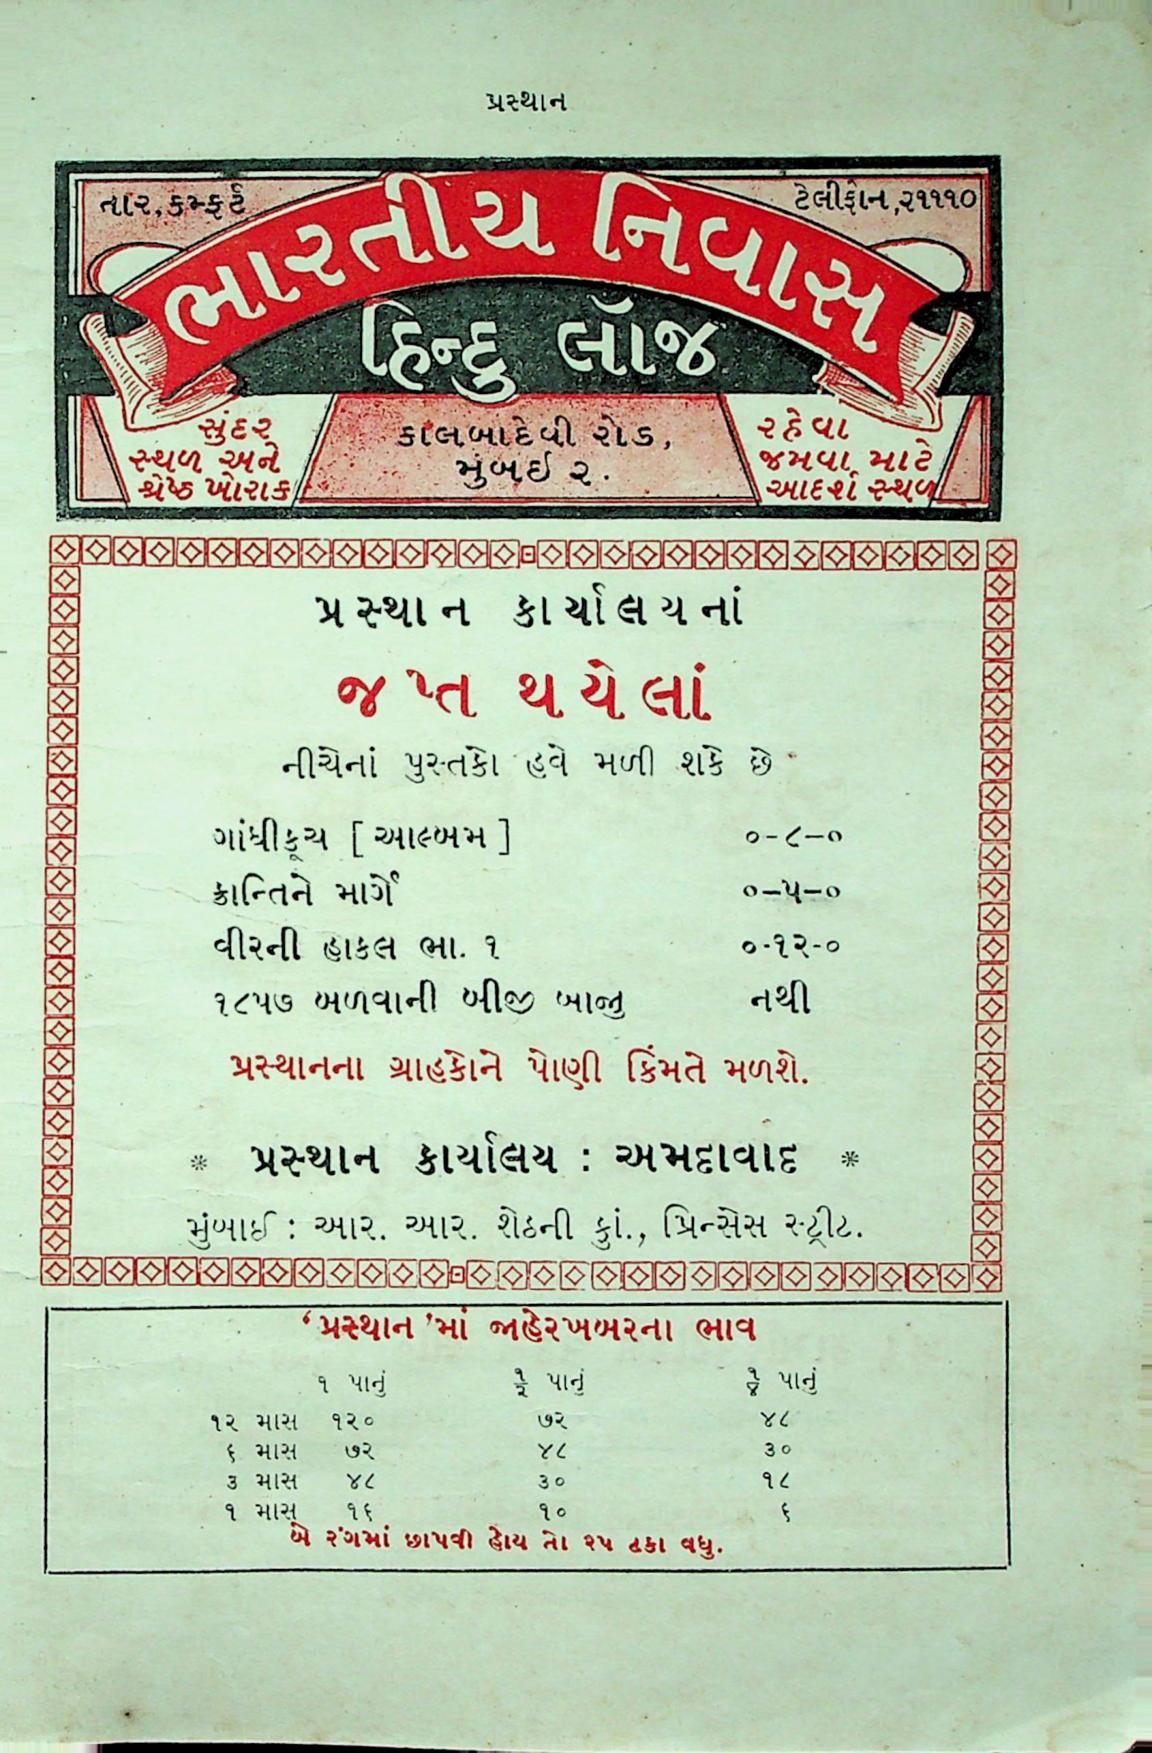 પ્રસ્થાન
તાર, કમ્ફર્ટ
ટેલીફોન, ૨૧૧૧૦
ભારતીય નિવાસ
હિન્દુ લૉજ
સુંદર
સ્થળ અને
શ્રેષ્ઠ ખોરાક
કાલબાદેવી રોડ,
મુંબઈ ૨.
રહેવા
જમવા માટે
આદર્શ સ્થળ
પ્રસ્થાન કાર્યાલયનાં
જપ્ત થયેલાં
નીચેનાં પુસ્તકો હવે મળી શકે છે
ગાંધીકૂચ [ આલ્બમ ] ૦-૮-૦
ક્રાન્તિને માર્ગે ૦-૫-૦
વીરની હાકલ ભા. ૧ ૦-૧૨-૦
૧૮૫૭ બળવાની બીજી બાજુ નથી
પ્રસ્થાનના ગ્રાહકોને પોણી કિંમતે મળશે.
* પ્રસ્થાન કાર્યાલય : અમદાવાદ *
મુંબાઈ : આર. આર. શેઠની કું., પ્રિન્સેસ સ્ટ્રીટ.
‘પ્રસ્થાન’માં જાહેરખબરના ભાવ
૧ પાનું ૧/૨ પાનું ૧/૪ પાનું
૧૨ માસ ૧૨૦ ૭૨ ૪૮
૬ માસ ૭૨ ૪૮ ૩૦
૩ માસ ૪૮ ૩૦ ૧૮
૧ માસ ૧૬ ૧૦ ૬
બે રંગમાં છાપવી હોય તો ૨૫ ટકા વધુ.